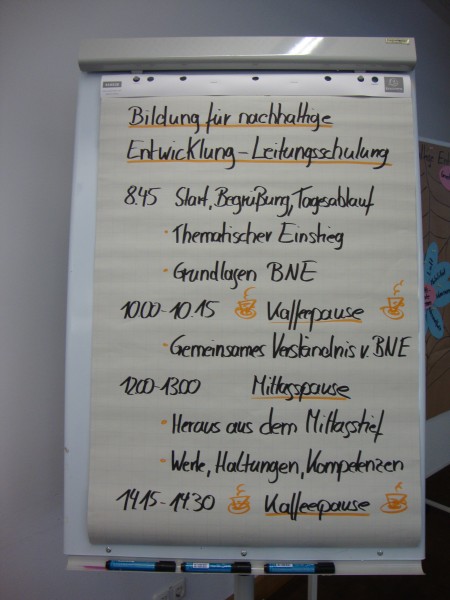 Bildung für nachhaltige
Entwicklung-Leitungsschulung
8.45 Start, Begrüßung, Tagesablauf
· Thematischer Einstieg
· Grundlagen BNE
1000-10.15 Kaffeepause
· Gemeinsames Verständnis v. BNE
1200-1300 Mittagspause
· Heraus aus dem Mittagstief
· Werte, Haltungen, Kompetenzen
14.15-14.30 Kaffeepause